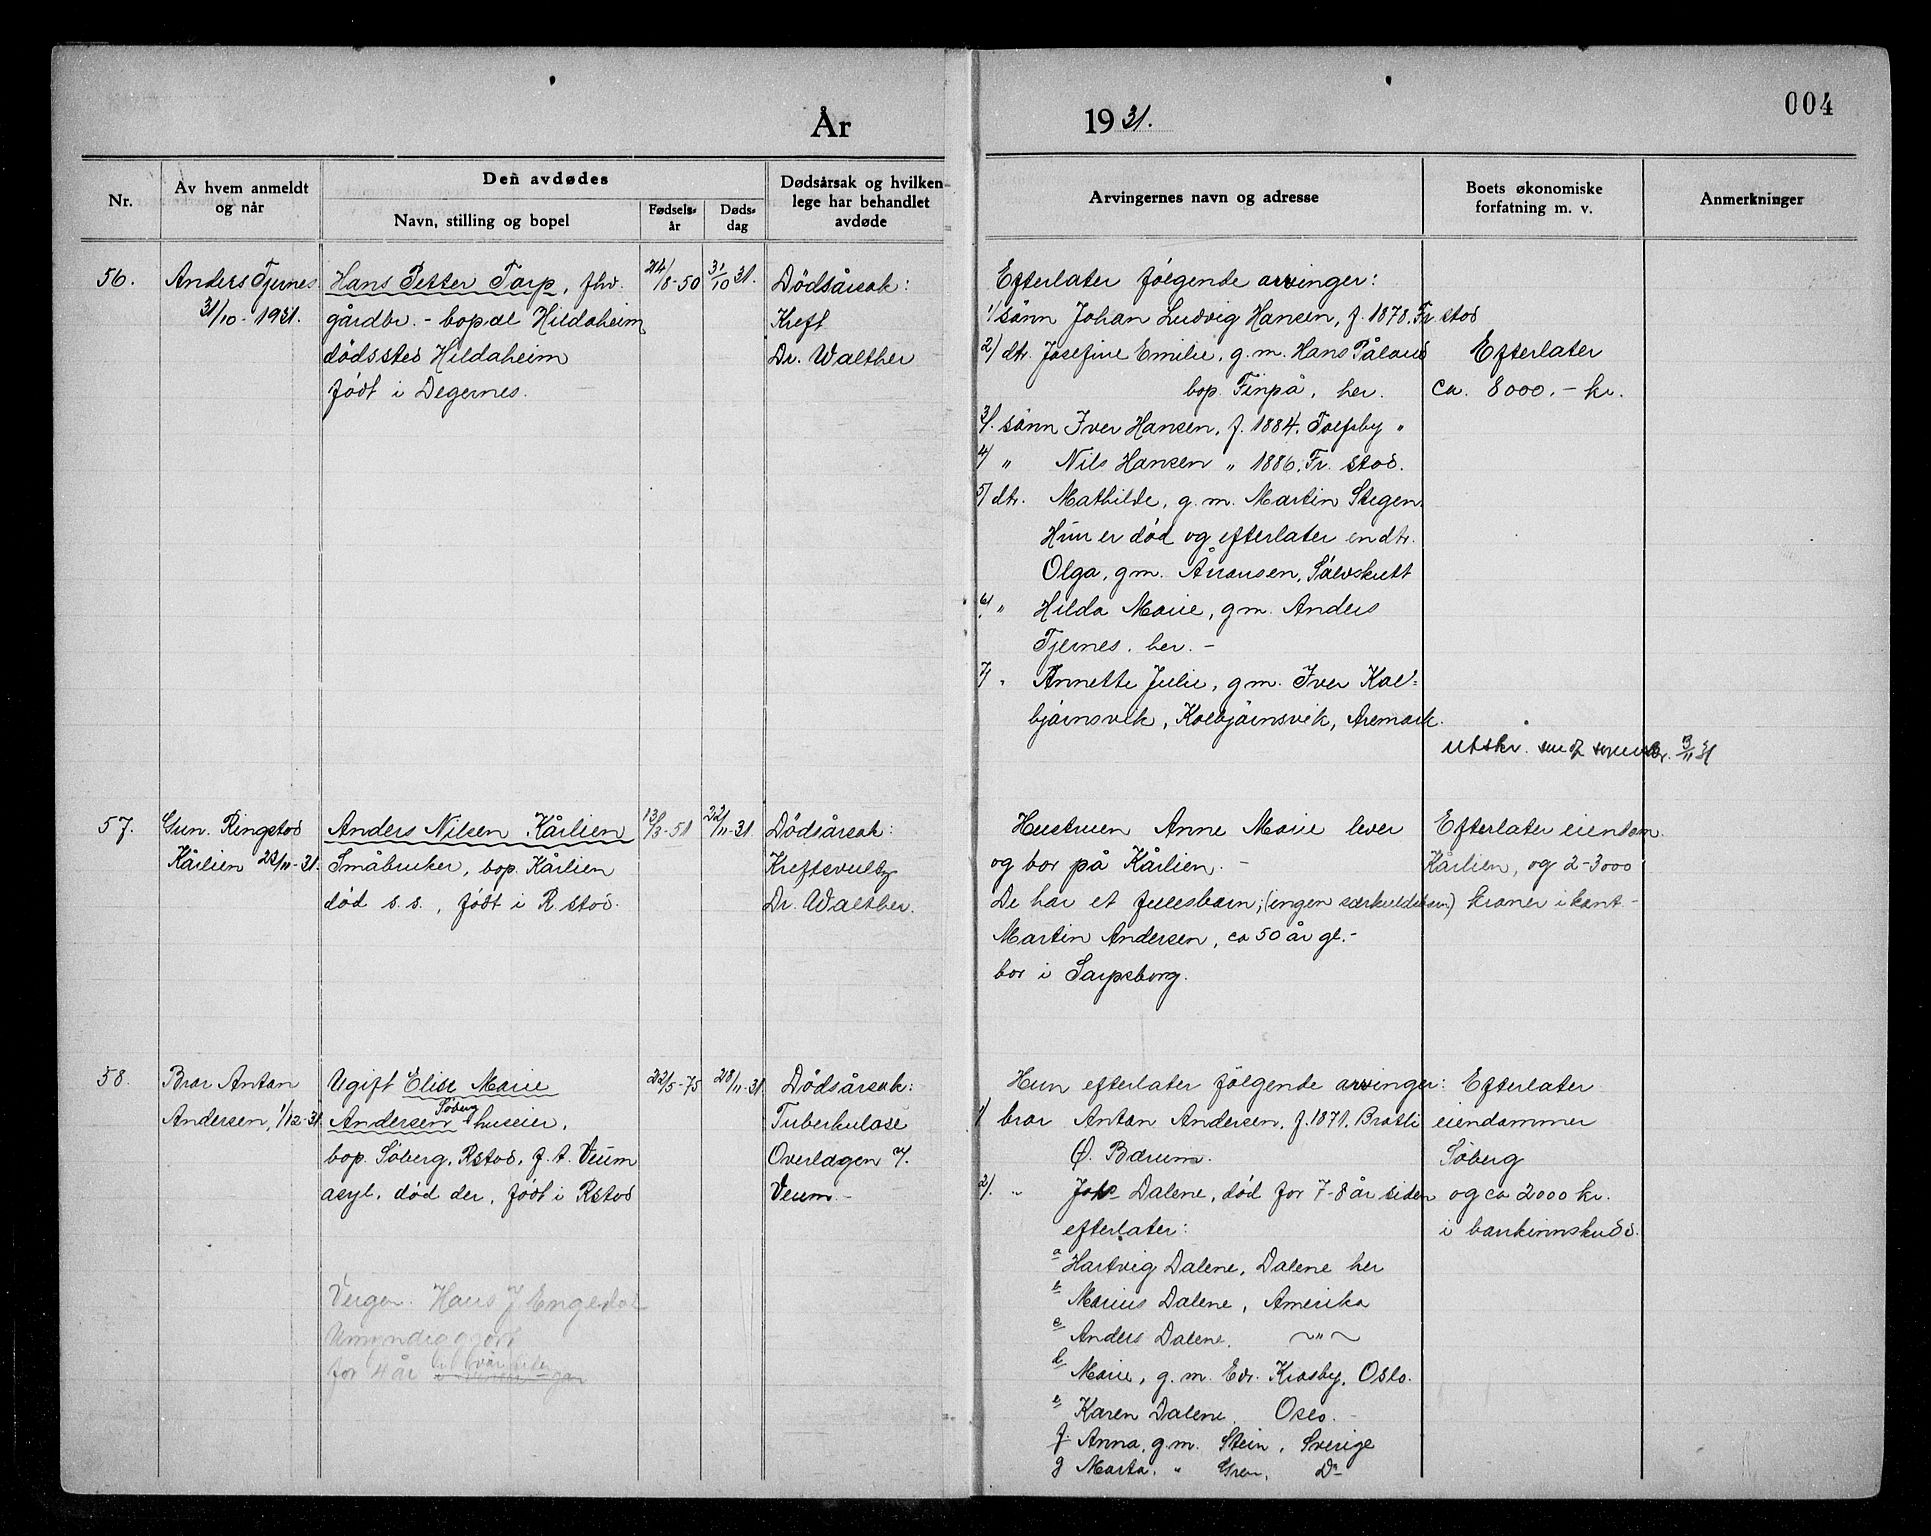 004
År 1931.
Nr.
Av hvem anmeldt og når
Den avdødes
Navn, stilling og bopel
Fødsels-år
Døds-dag
Dødsårsak og hvilken lege har behandlet avdøde
Arvingernes navn og adresse
Boets økonomiske forfatning m. v.
Anmerkninger
56.
Anders Tjernes
31/10-1931.
Hans Petter Tarp, fhv.
gårdbr. - bopæl Hildaheim
dödssted Hildaheim
födt i Degernes.
24/8-50
31/10 31.
Dödsårsak:
Kreft
Dr. Walther
Efterlater følgende arvinger:
1/ sönn Johan Ludvig Hansen, f. 1878. Fr. stad
2/ dtr. Josefine Emilie, g.m. Hans Påland
bop. Finpå, her.
3/. sönn Iver Hansen, f. 1884. Tolfsby "
4/ " Nils Hansen " 1886. Fr. stad.
5/ dtr. Mathilde, g.m. Martin Stegen.
Hun er död og efterlater en dtr.
Olga, g.m. Amundsen, Sölvskutt
6/ " Hilda Marie, g.m. Anders
Tjernes. her. -
7/ " Annette Julie, g.m. Iver Kol=
björnsvik, Kolbjörnsvik, Aremark.
Efterlater
ca. 8000.- kr.
utskr.
57.
Gun. Ringstad
Kårlien 22/11-31.
Anders Nilsen Kårlien
Småbruker, bop. Kårlien
död s.s., födt i R.stad.
13/3-51
22/11-31.
Dödsårsak:
Kreftsvulst
Dr. Walther.
Hustruen Anne Marie lever
og bor på Kårlien. -
De har et fellesbarn; (ingen særkuldsbarn)
Martin Andersen, ca 50 år gl.-
bor i Sarpsborg.
Efterlater eiendom.
Kårlien, og 2-3000
kroner i kont-
58.
Bror Anton
Andersen, 1/12-31.
Ugift Elise Marie
Andersen Söberg huseier,
bop. Söberg, Rstad, f.t. Veum
asyl, död der, födt i Rstad
22/5-75
28/11-31
Dödsårsak:
Tuberkulose
Overlægen v.
Veum.-
Vergen. Hans J Engedal
Umyndiggjort
for 4 år
Hun efterlater følgende arvinger:
1) bror Anton Andersen, f. 1871. Bratli
Ö. Bærum.
2/. " Joh Dalene, död for 7-8 år siden
efterlater:
a Hartvig Dalene, Dalene her
b Marius Dalene, Amerika
c Anders Dalene. ~"~
d Marie, g.m. Edv. Krosby, Oslo.
e Karen Dalene. Oslo.-
f. Anna, g.m. Stein, Sverige
g Marta. " Gren, Do
Efterlater
eiendommer
Söberg
og ca 2000 kr.
i bankinnskudd.